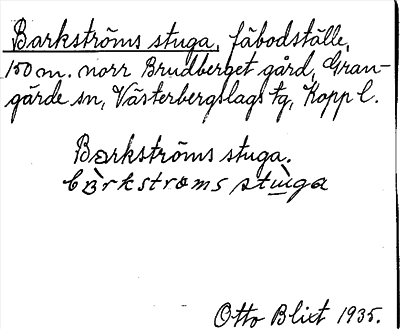 Barkströms stuga, fäbodställe,
150 m. norr Brudberget gård, Gran-
gärde sn, Västerbergslags tg, Kopp l.
Barkströms stuga.
bàrkstrøms stùga
Otto Blixt 1935.